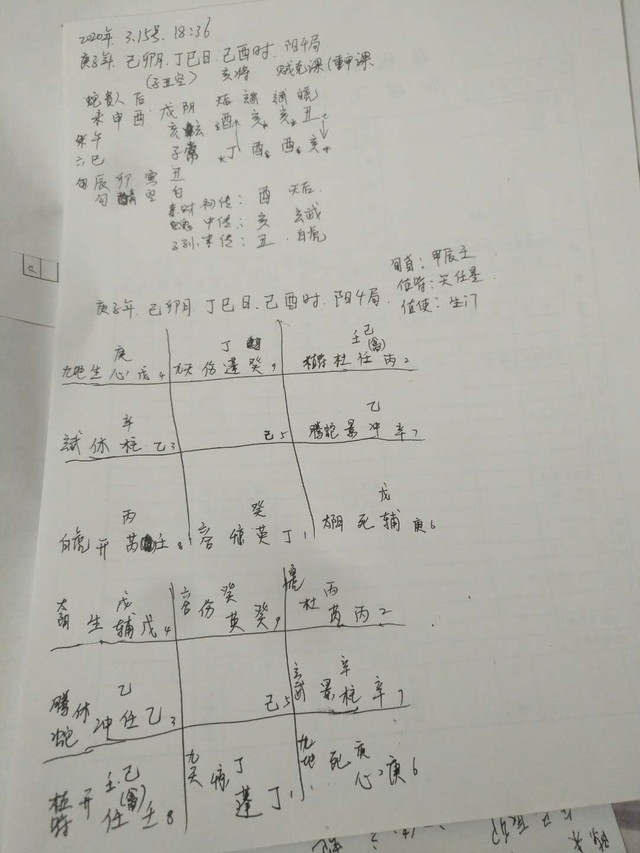 2020年 3.15号. 18:36
庚子年. 己卯月. 丁巳日. 己酉时. 阳4局
(子丑空) 亥将 课(重审课
蛇 贵人 后
未 申 酉 戌 阴 酉 亥 亥 丑
朱午 亥 玄
六巳 子 常 丁 酉 酉 亥
勾 辰 卯 寅 丑
勾 空 白
初传: 酉 天后
中传: 亥 玄武
子孙 末传: 丑 白虎
旬首: 甲辰壬
值符: 天任星
值使: 生门
庚子年. 己卯月 丁巳日. 己酉时. 阳4局
庚 丁 壬己
九地 生 心 戊4 九天 伤 蓬 癸9 值符 杜 任 丙2
辛 乙
玄武 休 柱 乙3 己5 腾蛇 景 冲 辛7
丙 癸 戊
白虎 开 芮 壬8 六合 英 丁1 太阴 死 辅 庚6
戊 癸 丙
太阴 生 辅 戊4 六合 伤 英 癸9 虎 杜 芮 丙2
乙 辛
腾蛇 休 冲 任 乙3 己5 玄武 景 柱 辛7
壬.己 丁 庚
值符 开 任 壬8 九天 蓬 丁1 九地 死 心 庚6